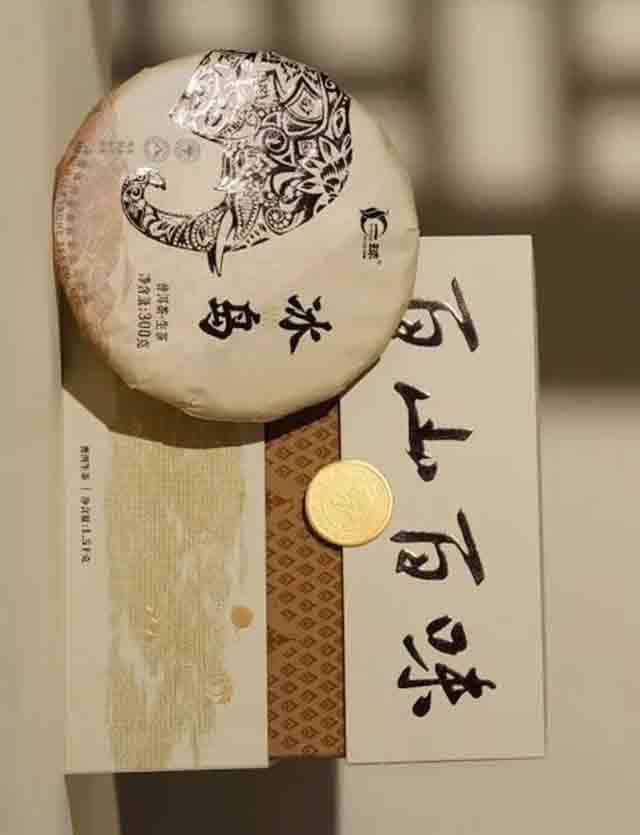 百山百味
冰岛
普洱茶·生茶
净含量:300克
普洱生茶 | 净含量:1.5千克